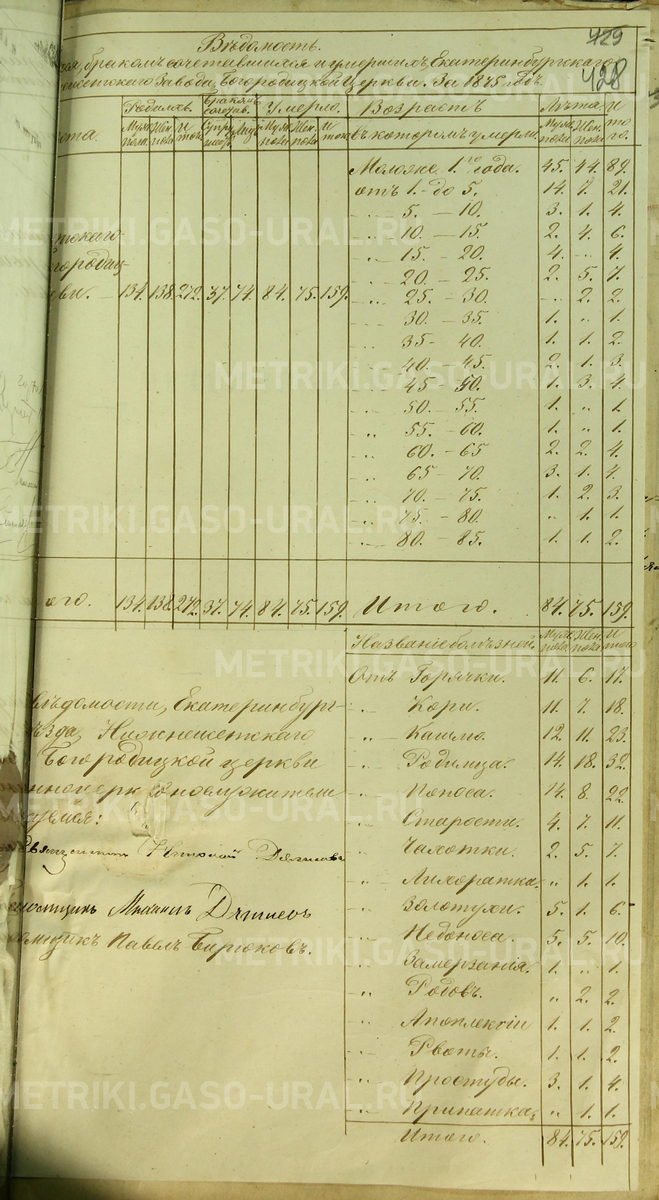 429
428
Вѣдомость.
бракомъ сочетавшихся и умершихъ, Екатеринбургскаго
Завода, Богородицкой Церкви. За 1875 годъ.
Родилось. Бракомъ сочет. Умерло. Возрастъ Лѣта И
Муж. пола Жен. пола Итого Супр. Лицъ Муж. пола Жен. пола Итого въ которомъ умерли. Муж. пола Жен. пола того.
Моложе 1го года. 45. 44. 89.
отъ 1.-до 5. 14. 7. 21.
" 5. – 10. 3. 1. 4.
" 10. – 15. 2. 4. 6.
" 15. – 20. 4. " 4.
" 20. – 25. 2. 5. 7.
134. 138. 272. 37. 74. 84. 75. 159. " 25. – 30. " 2. 2.
" 30. – 35. 1. " 1.
" 35 – 40. 1. 1. 2.
" 40. – 45. 2. 1. 3.
" 45 – 50. 1. 3. 4.
" 50. – 55. 1. " 1.
" 55. – 60. 1. " 1.
" 60. – 65 2. 2. 4.
" 65 – 70. 3. 1. 4.
" 70. – 75. 1. 2. 3.
" 75. – 80. " 1. 1.
" 80. – 85. 1. 1. 2.
ого. 134. 138. 272. 37. 74. 84. 75. 159. Итого. 84. 75. 159.
Названіе болѣзней. Муж. пола Жен. пола Итого
Отъ Горячки. 11. 6. 17.
" Кори. 11. 7. 18.
" Кашлю. 12. 11. 23.
" Родимца. 14. 18. 32.
" Поноса. 14. 8. 22.
" Старости. 4. 7. 11.
" Чахотки. 2. 5. 7.
" Лихоратка. " 1. 1.
" Золотухи. 5. 1. 6.
" Недоноса. 5. 5. 10.
" Замерзанія. 1. " 1.
" Родовъ. " 2. 2.
" Апоплексіи 1. 1. 2.
" Рвоты. 1. 1. 2.
" Простуды. 3. 1. 4.
" Припатка. " 1. 1.
Итого. 84. 75. 159.
вѣдомости, Екатеринбург-
ѣзда, Нижнеисетскаго
Богородицкой церкви
Николай
Михаилъ
Павелъ Бирюковъ.
METRIKI.GASO-URAL.RU
METRIKI.GASO-URAL.RU
METRIKI.GASO-URAL.RU
METRIKI.GASO-URAL.RU
METRIKI.GASO-URAL.RU
METRIKI.GASO-URAL.RU
METRIKI.GASO-URAL.RU
METRIKI.GASO-URAL.RU